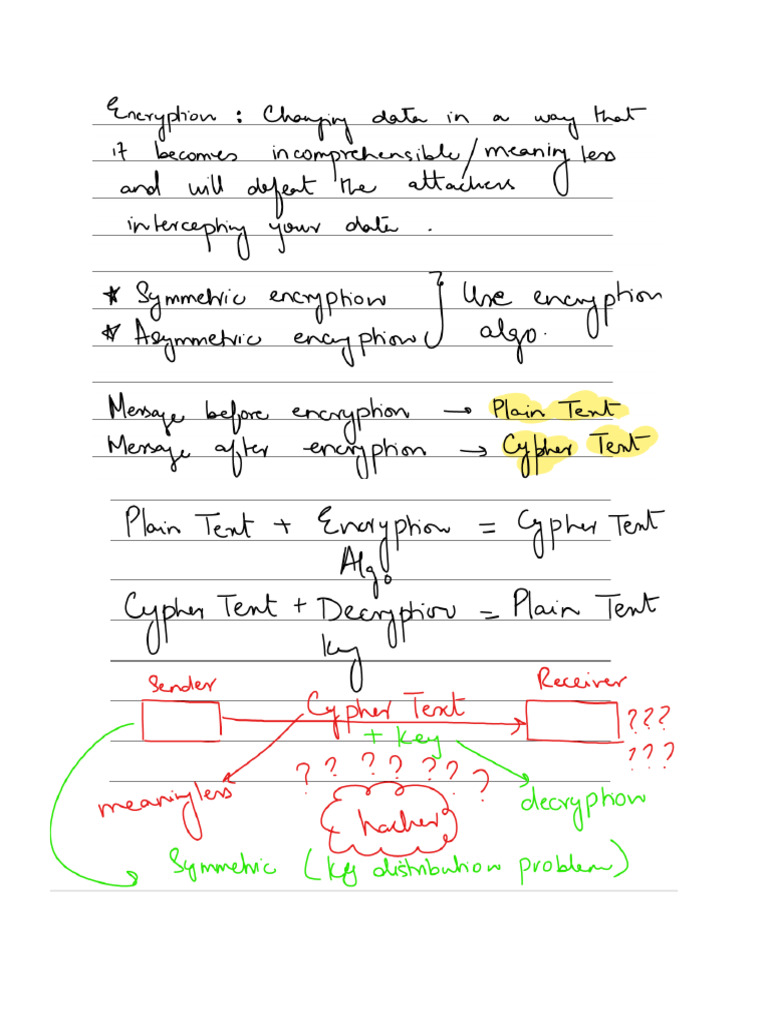 Encryption : Changing data in a way that
it becomes incomprehensible/meaningless
and will defeat the attackers
intercepting your data .
* Symmetric encryption } Use encryption
* Asymmetric encryption algo.
Message before encryption → Plain Text
Message after encryption → Cypher Text
Plain Text + Encryption = Cypher Text
Algo
Cypher Text + Decryption = Plain Text
key
Sender Receiver
Cypher Text ???
+ key ???
? ? ? ? ? ? ?
meaningless hacker decryption
Symmetric (key distribution problem)